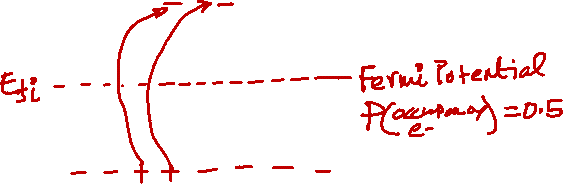 Efi
Fermi Potential
P(occupancy) = 0.5
e-